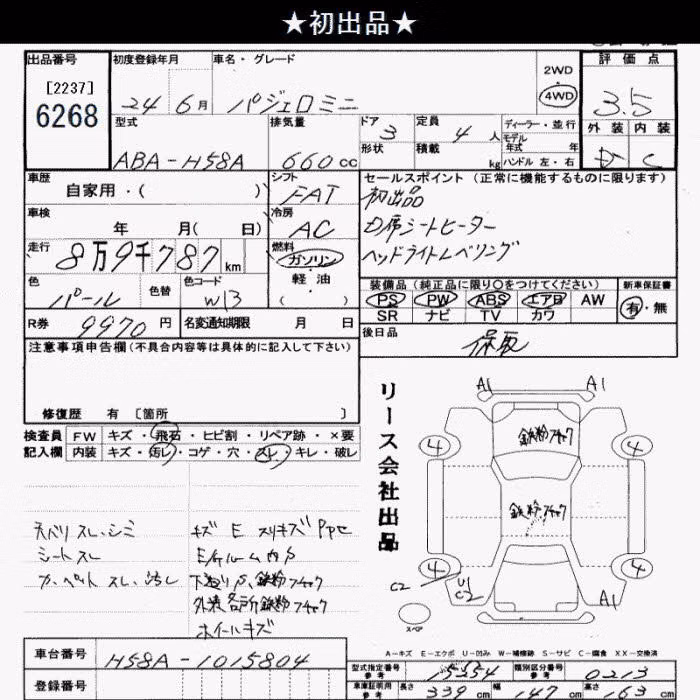 ★初出品★
出品番号
[2237]
6268
初度登録年月
24 6月
車名・グレード
パジェロミニ
2WD
4WD
評価点
3.5
外装 内装
D C
型式
ABA-H58A
排気量
660cc
ドア 3
形状
定員 4人
積載 kg
ディーラー・並行
モデル年式 年
ハンドル 左・右
車歴
自家用・( )
シフト
FAT
車検
年 月( 日)
冷房
AC
走行
8万9千787km
燃料
ガソリン
軽油
( )
色
パール
色替
色コード
W13
R券 9970円
名変通知期限 月 日
セールスポイント(正常に機能するものに限ります)
初出品
D席シートヒーター
ヘッドライトレベリング
装備品(純正品に限り○をつけてください)
PS PW ABS エアB AW
SR ナビ TV カワ
新車保証書
有・無
後日品
保取
注意事項申告欄(不具合内容等は具体的に記入して下さい)
修復歴 有 [箇所 ]
検査員記入欄
FW キズ・飛石・ヒビ割・リペア跡・×要
内装 キズ・汚レ・コゲ・穴・スレ・キレ・破レ
天バリ スレ、シミ
シートスレ
カーペット スレ、汚レ
キズ E スリキズ
E/gルーム内S
下廻りS、鉄粉フチャク
外装各所鉄粉フチャク
ホイールキズ
リース会社出品
A1 A1
鉄粉フチャク
4 4
鉄粉フチャク
4 4
C2
U1
C2
A1
スペア
A-キズ E-エクボ U-凹み W-補修跡 S-サビ C-腐食 XX-交換済
車台番号 H58A-1015804
登録番号
型式指定番号 参考 15354
類別区分番号 参考 0213
車庫証明用 参考 長さ 339cm 幅 147cm 高さ 163cm